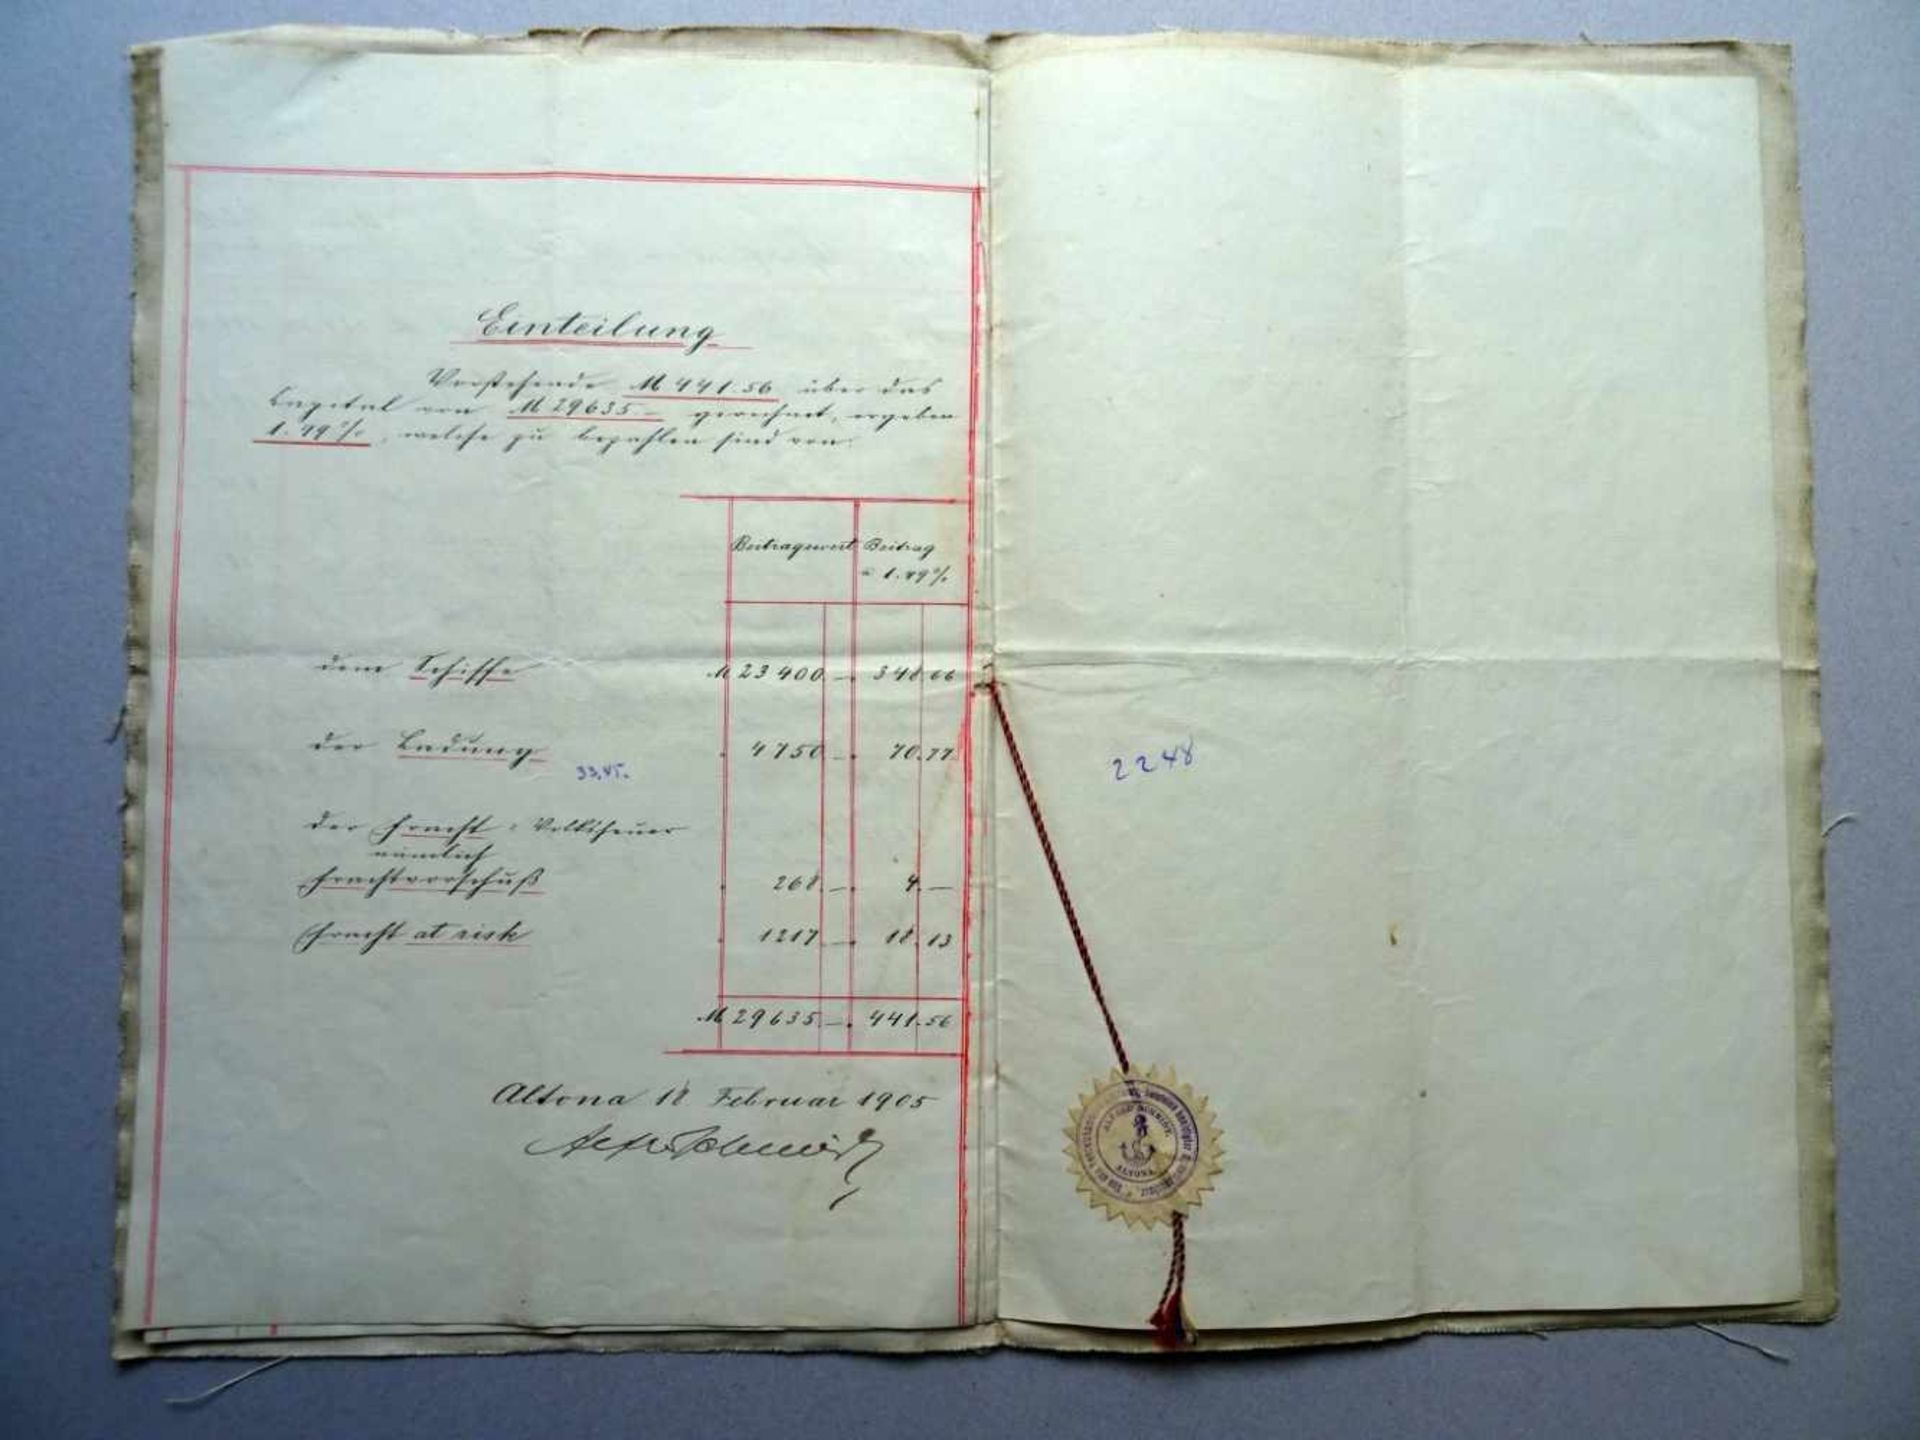 Einteilung
Vorstehende M 441.56 über das
Capital von M 29635 – gerechnet, ergeben
1.49 %, welche zu bezahlen sind von:
Beitragswert Beitrag
à 1.49 %
dem Schiffe M 23400 – . 348.66
der Ladung . 4750 – . 70.77
33.45.
der Fracht : Volksheuer
nämlich
Frachtvorschuß . 268 – . 4. –
Fracht at risk . 1217 – . 18.13
M 29635 – . 441.56
Altona 18 Februar 1905
Alfr. Schmidt
2248
ALFRED SCHMIDT.
ALTONA.